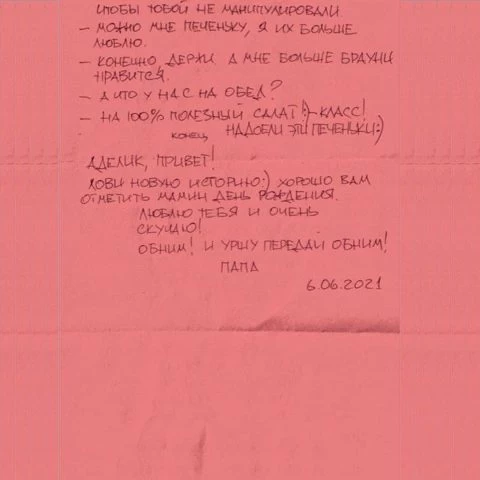 ЧТОБЫ ТОБОЙ НЕ МАНИПУЛИРОВАЛИ.
– МОЖНО МНЕ ПЕЧЕНЬКУ, Я ИХ БОЛЬШЕ
ЛЮБЛЮ.
– КОНЕШНО, ДЕРЖИ А МНЕ БОЛЬШЕ БРАУНИ
НРАВИТСЯ.
– А ЧТО У НАС НА ОБЕД?
– НА 100% ПОЛЕЗНЫЙ САЛАТ!:) – КЛАСС!
КОНЕЦ НАДОЕЛИ ЭТИ ПЕЧЕНЬКИ:)
АДЕЛИК, ПРИВЕТ!
ЛОВИ НОВУЮ ИСТОРИЮ:) ХОРОШО ВАМ
ОТМЕТИТЬ МАМИН ДЕНЬ РОЖДЕНИЯ.
ЛЮБЛЮ ТЕБЯ И ОЧЕНЬ
СКУЧАЮ!
ОБНИМ! И УРШУ ПЕРЕДАЙ ОБНИМ!
ПАПА
6.06.2021